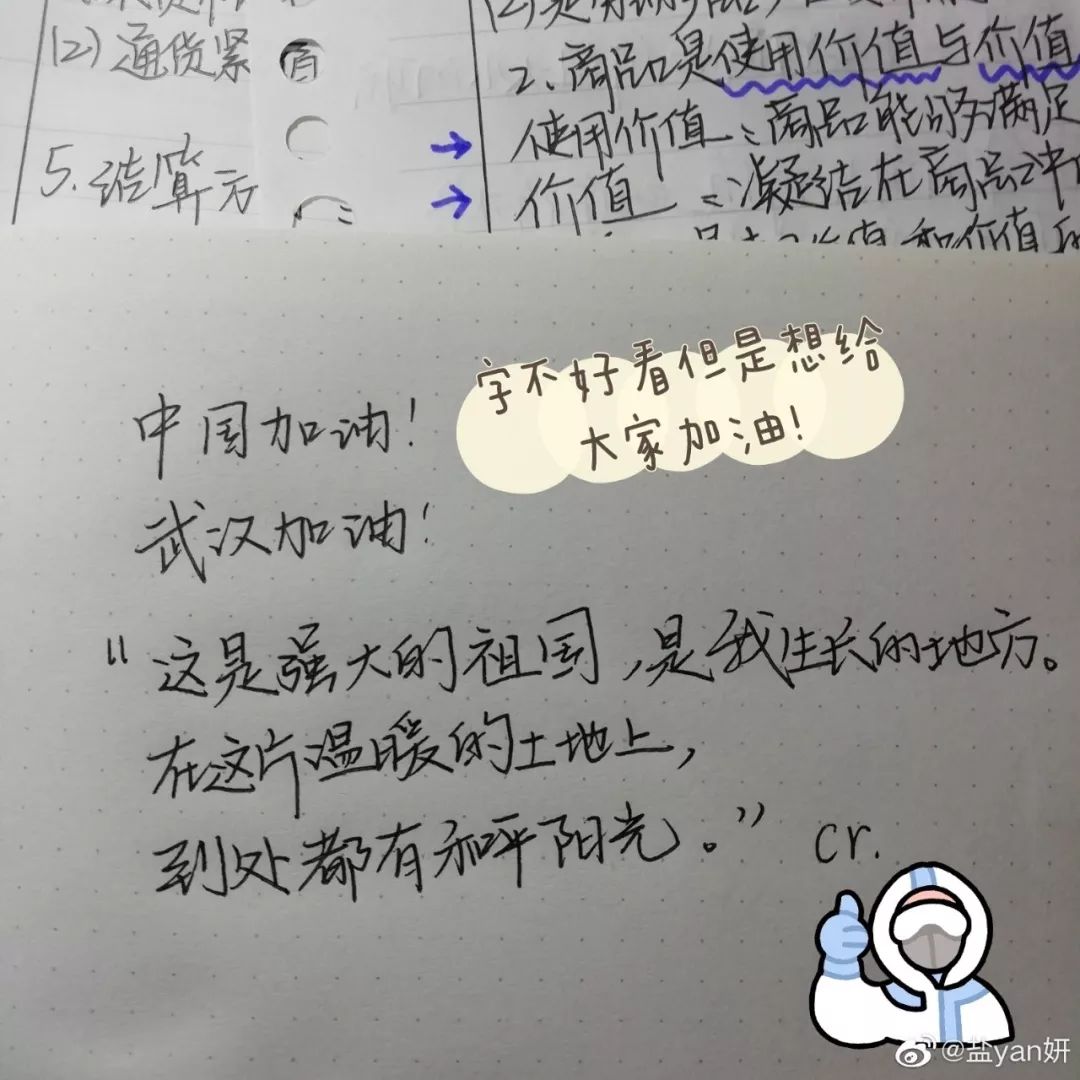 (2)通货紧
5.结算方
2.商品是使用价值与价值
使用价值:商品能够满足
价值:凝结在商品中
字不好看但是想给
大家加油!
中国加油!
武汉加油!
“这是强大的祖国,是我生长的地方。
在这片温暖的土地上,
到处都有和平阳光。” cr.
@盐yan妍